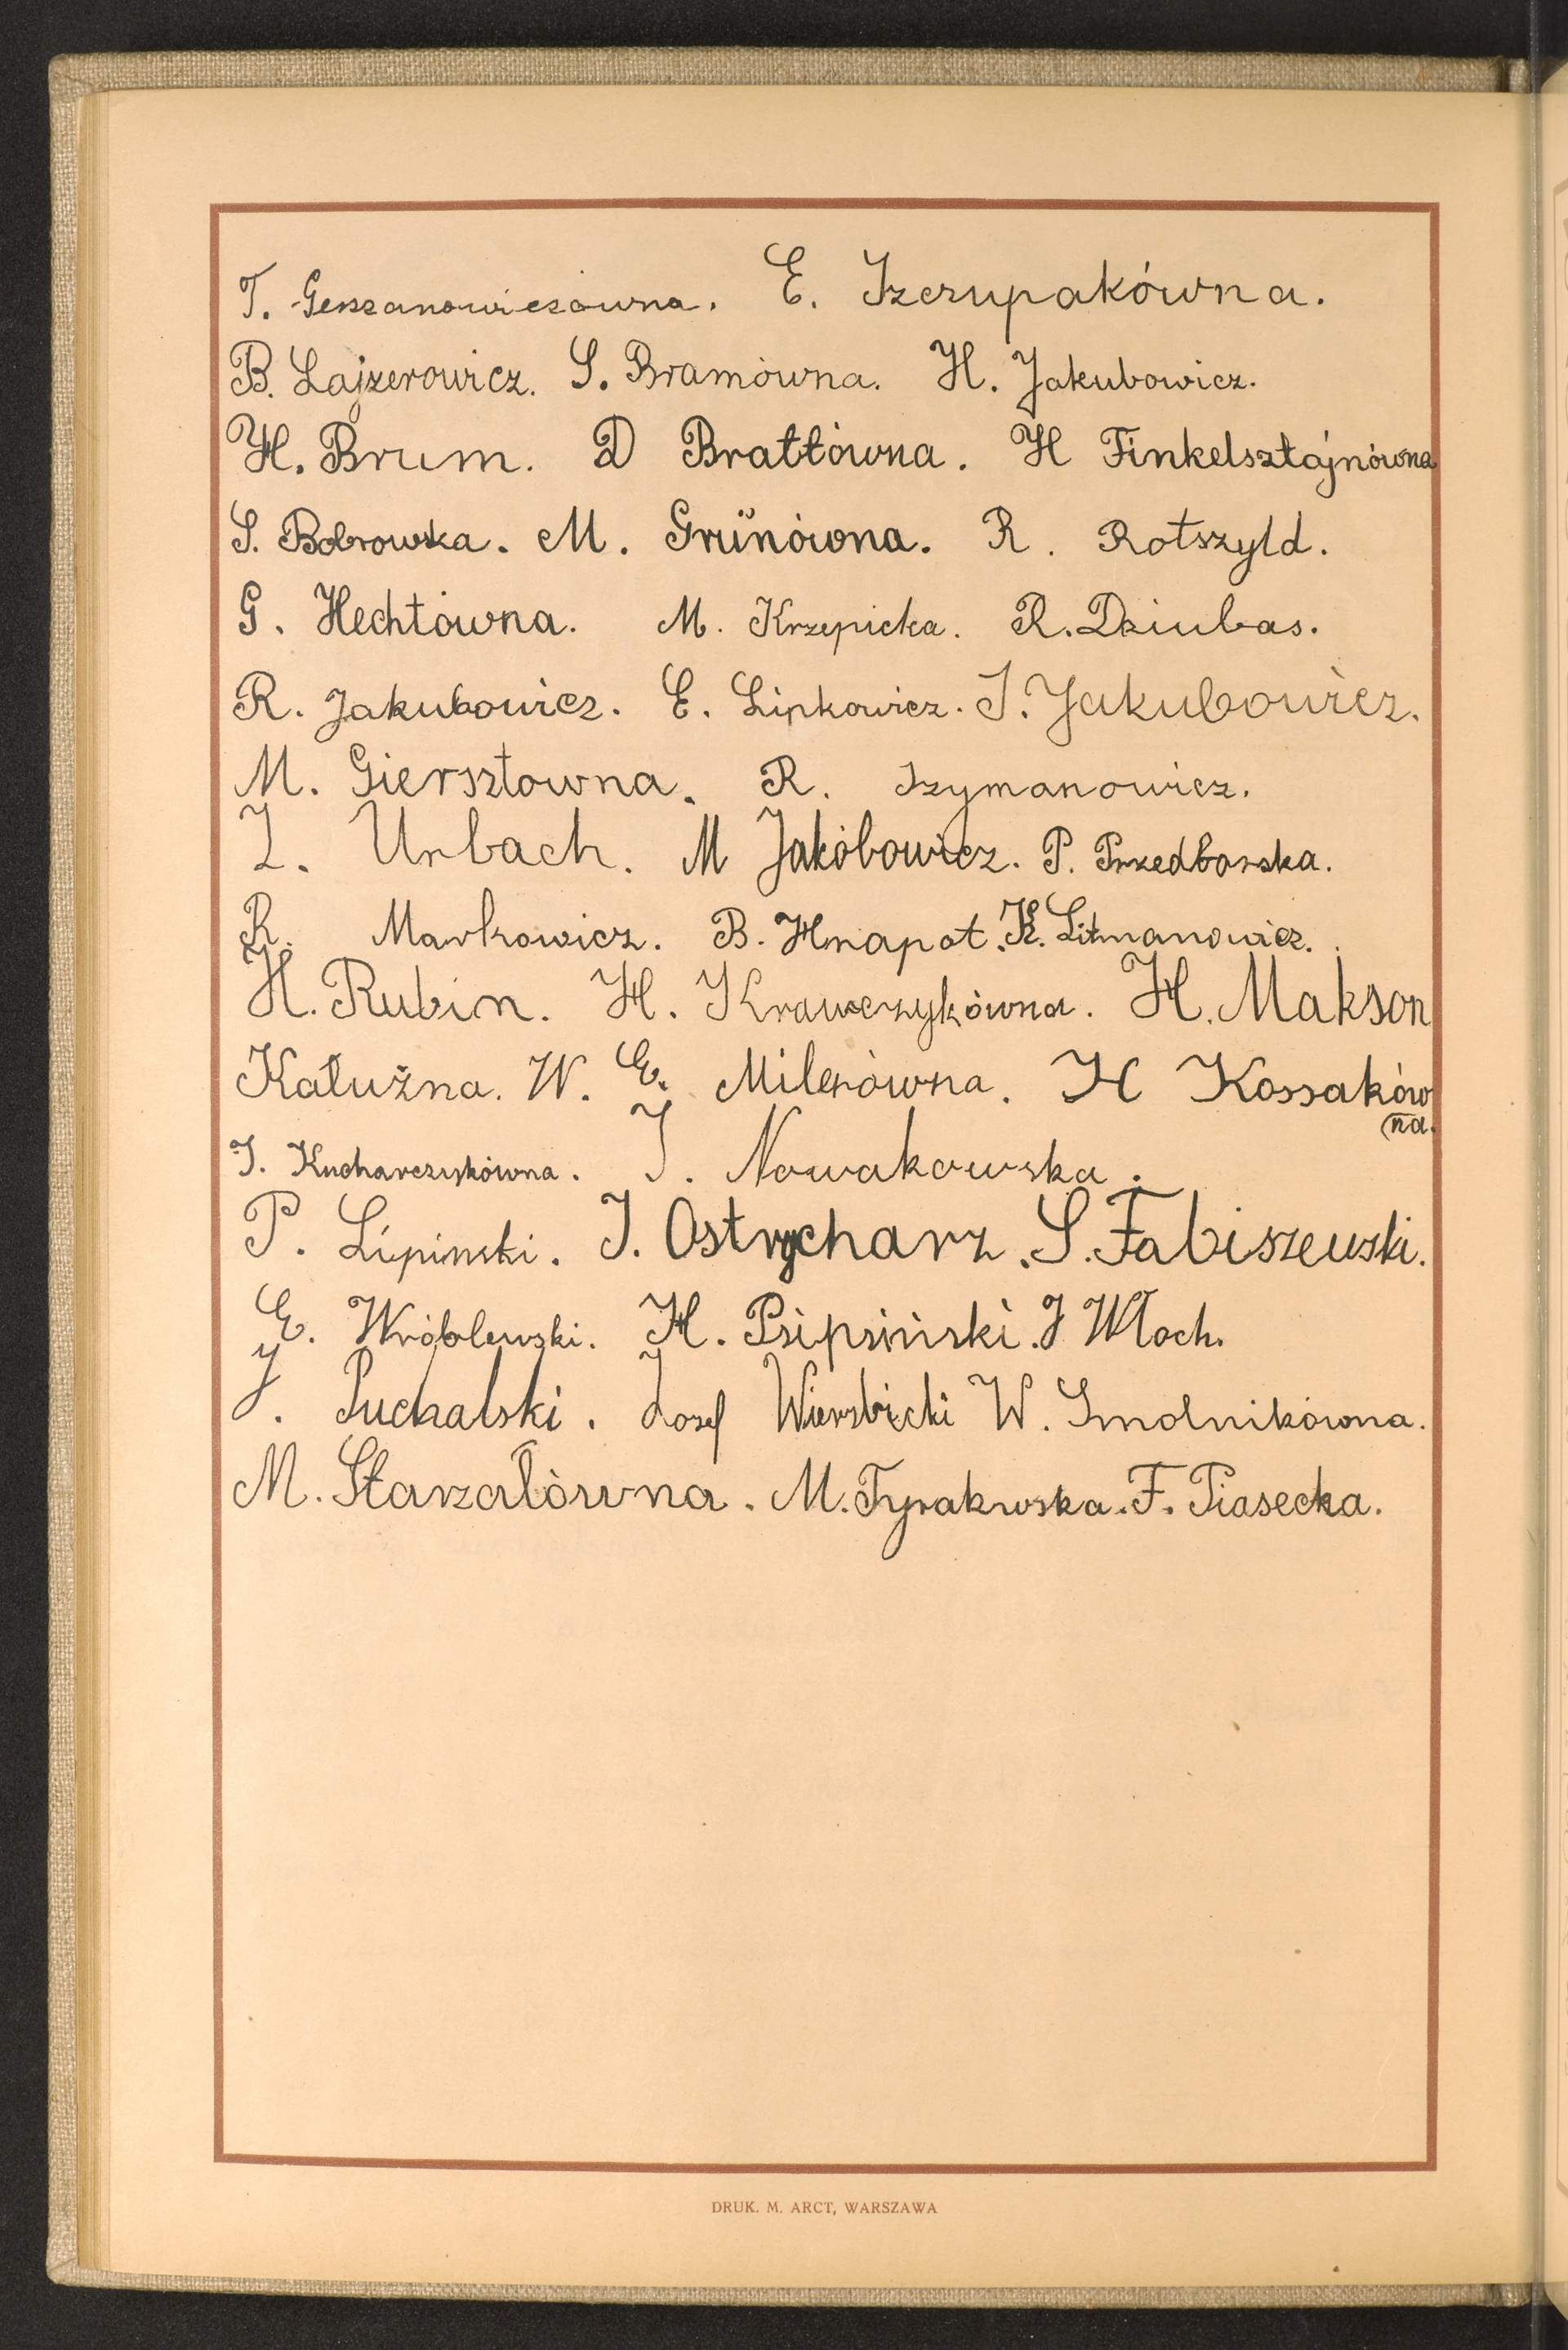 T. Gerszanowiczówna. E. Szczupakówna.
B. Lajzerowicz. S. Bramówna. H. Jakubowicz.
H. Brum. D Brattówna. H Finkelsztajnówna
S. Bobrowska. M. Grünówna. R. Rotszyld.
G. Hechtówna. M. Krzepicka. R. Dziubas.
R. Jakubowicz. E. Lipkowicz. I. Jakubowicz.
M. Giersztowna. R. Szymanowicz.
Z. Urbach. M Jakóbowicz. P. Przedborska.
R. Markowicz. B. Hnapot. K. Litmanowicz.
H. Rubin. H. Krawczykówna. H. Makson
Kałużna. W. E. Milerówna. H Kossaków
(na.
I. Kucharczykówna. I. Nowakowska.
P. Lipinski. J. Ostrycharz. S. Fabiszewski.
E. Wróblewski. H. Psipsiński. J Włoch.
J. Puchalski. Józef Wierzbicki W. Smolnikówna.
M. Starzałówna. M. Tyrakwska. F. Piasecka.
DRUK. M. ARCT, WARSZAWA